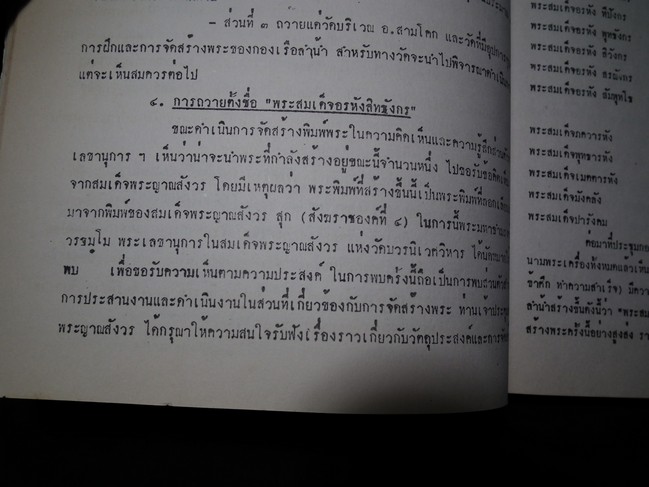 - ส่วนที่ ๓ ถวายแด่วัดบริเวณ อ.สามโคก และวัดที่มีอุปการ
การฝึกและการจัดสร้างพระของกองเรือลำน้ำ สำหรับทางวัดจะนำไปพิจารณาดำเนิน
แต่จะเห็นสมควรต่อไป
๔. การถวายตั้งชื่อ "พระสมเด็จอรหังสิทธังกร"
ขณะดำเนินการจัดสร้างพิมพ์พระในความคิดเห็นและความรู้สึก
เลขานุการ ฯ เห็นว่าน่าจะนำพระที่กำลังสร้างอยู่ขณะนี้จำนวนหนึ่ง ไปขอรับข้อคิด
จากสมเด็จพระญาณสังวร โดยมีเหตุผลว่า พระพิมพ์ที่สร้างขึ้นนี้เป็นพระพิมพ์ที่
มาจากพิมพ์ของสมเด็จพระญาณสังวร สุก (สังฆราชองค์ที่ ๔) ในการนี้พระมหา
วรธมฺโม พระเลขานุการในสมเด็จพระญาณสังวร แห่งวัดบวรนิเวศวิหาร ได้นัด
พบ เพื่อขอรับความเห็นตามความประสงค์ ในการพบครั้งนี้ถือเป็นการพบ
การประสานงานและดำเนินงานในส่วนที่เกี่ยวข้องกับการจัดสร้างพระ ท่านเจ้าประ
พระญาณสังวร ได้กรุณาให้ความสนใจรับฟังเรื่องราวเกี่ยวกับวัตถุประสงค์และการจัด
พระสมเด็จอรหัง ทีปังกร
พระสมเด็จอรหัง พุทธังกร
พระสมเด็จอรหัง ชิวังกร
พระสมเด็จอรหัง สรณังกร
พระสมเด็จอรหัง สัมพุทโธ
พระสมเด็จภควารหัง
พระสมเด็จพุทธารหัง
พระสมเด็จเมตตารหัง
พระสมเด็จมังคลัง
พระสมเด็จบารังคม
ต่อมาที่ประชุม
นามพระเครื่องทั้งหมดแล้วเห็น
ข้าศึก ทำความสำเร็จ) มีความ
ลำน้ำสร้างขึ้นดังนี้ว่า "พระสม
สร้างพระครั้งนี้อย่างสูงส่ง รา